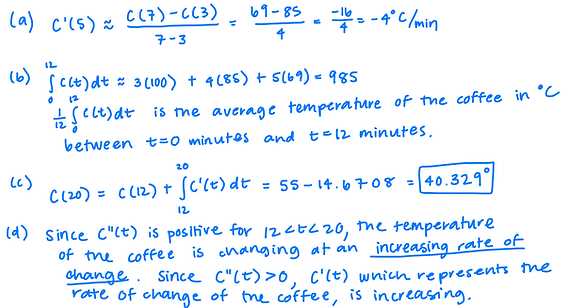 (a) C'(5) ≈ C(7)-C(3) / 7-3 = 69-85 / 4 = -16 / 4 = -4°C/min
(b) ∫₀¹² C(t)dt ≈ 3(100) + 4(85) + 5(69) = 985
1/12 ∫₀¹² C(t)dt is the average temperature of the coffee in °C
between t=0 minutes and t=12 minutes.
(c) C(20) = C(12) + ∫₁₂²⁰ C'(t)dt = 55-14.6708 = 40.329°
(d) Since C"(t) is positive for 12<t<20, the temperature
of the coffee is changing at an increasing rate of
change. Since C"(t)>0, C'(t) which represents the
rate of change of the coffee, is increasing.